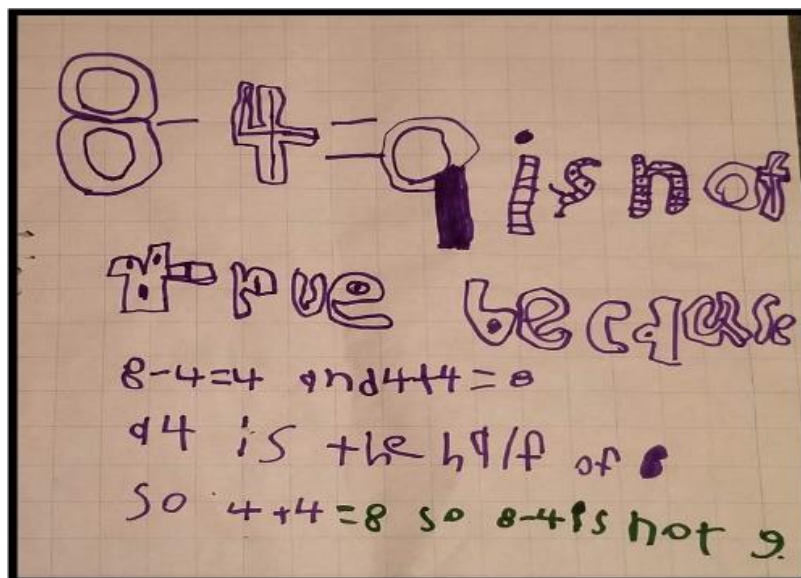 8 - 4 = 9 is not
true because
8-4=4 and 4+4=8
a 4 is the half of 8
so 4+4=8 so 8-4 is not 9.